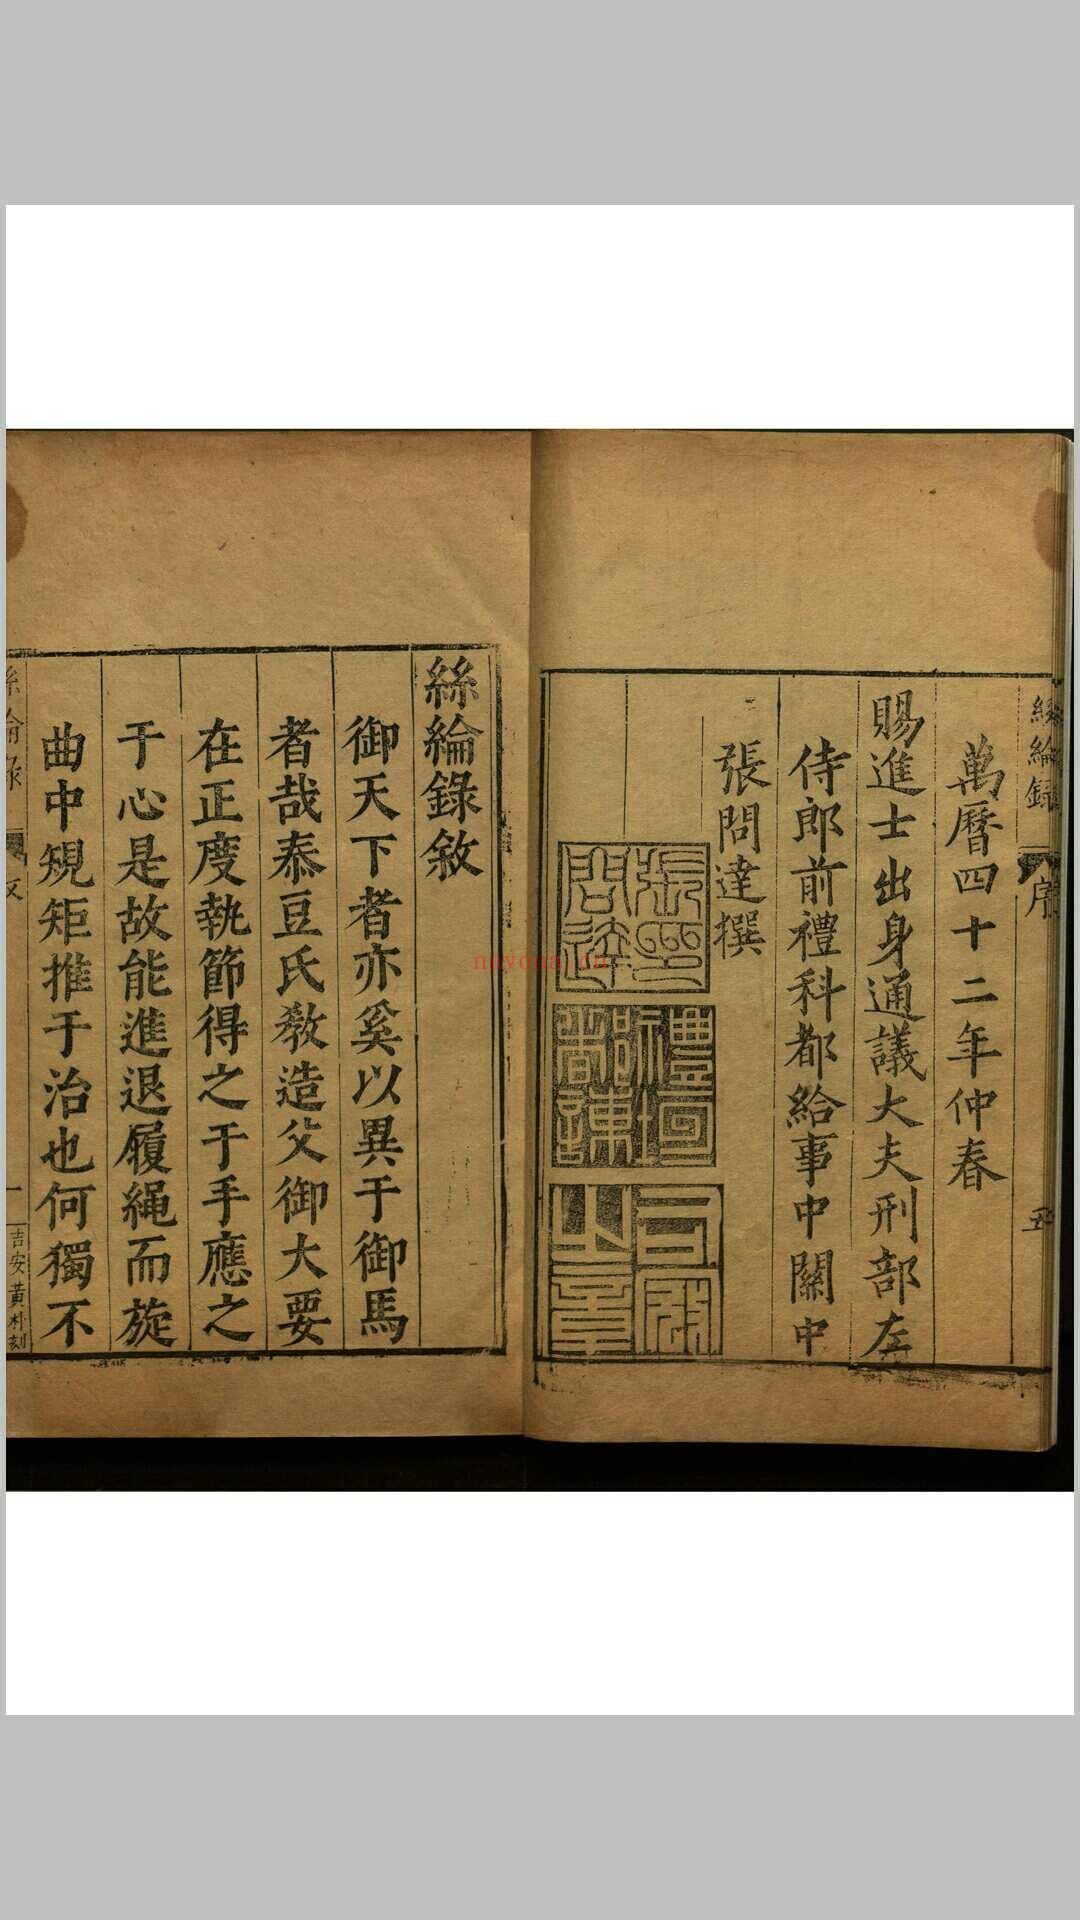 絲綸錄
序
五
萬曆四十二年仲春
賜進士出身通議大夫刑部左
侍郎前禮科都給事中關中
張問達撰
張問達印
絲綸錄敘
御天下者亦奚以異于御馬
者哉泰豆氏教造父御大要
在正度執節得之于手應之
于心是故能進退履繩而旋
曲中規矩推于治也何獨不
絲綸錄
一
吉安黃朴刻
nayona.cn